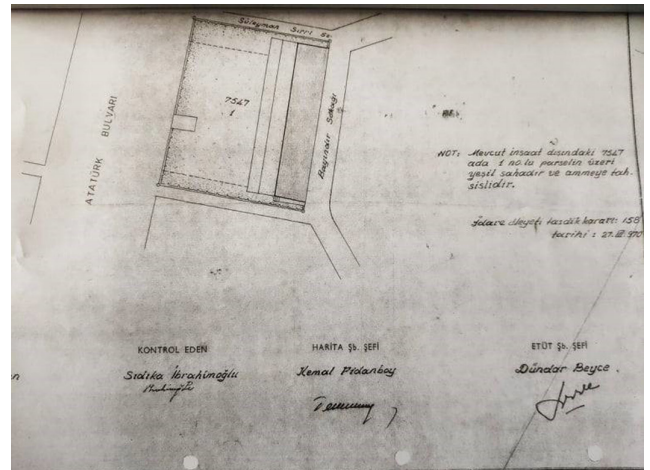 Süleyman Sırrı So.
7547
1
ATATÜRK BULVARI
Bayındır Sokağı
NOT: Mevcut inşaat dışındaki 7547
ada 1 no.lu parselin üzeri
yeşil sahadır ve ammeye tah.
sislidir.
İdare Heyeti tasdik kararı: 158
tarihi : 27. III. 970
KONTROL EDEN
Sıdıka İbrahimoğlu
HARİTA Şb. ŞEFİ
Kemal Fidanboy
ETÜT Şb. ŞEFİ
Dündar Beyce.